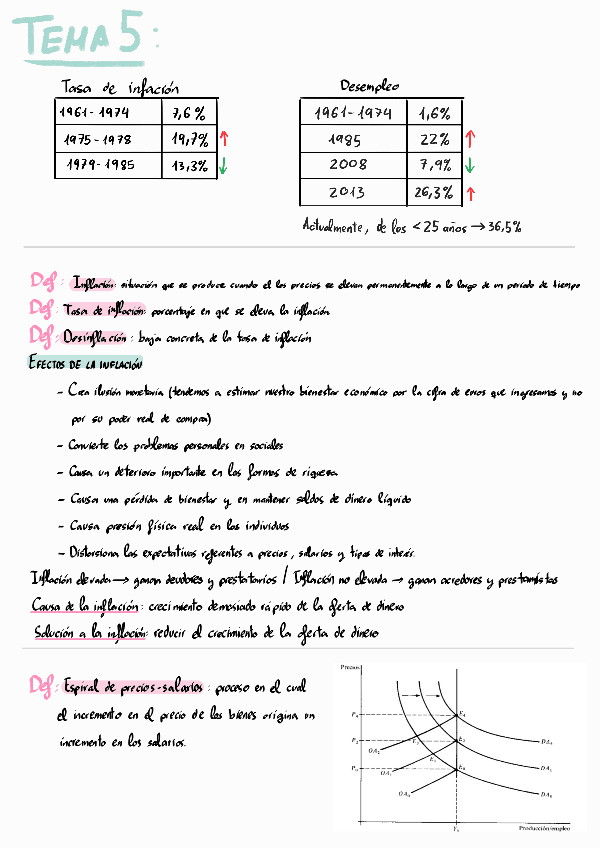 TEMA 5:
Tasa de inflación
1961-1974 7,6%
1975-1978 19,7% ↑
1979-1985 13,3% ↓
Desempleo
1961-1974 1,6%
1985 22% ↑
2008 7,9% ↓
2013 26,3% ↑
Actualmente, de los <25 años → 36,5%
Def: Inflación: situación que se produce cuando el los precios se elevan permanentemente a lo largo de un periodo de tiempo
Def: Tasa de inflación: porcentaje en que se eleva la inflación
Def: Desinflación: baja concreta de la tasa de inflación
EFECTOS DE LA INFLACIÓN
- Crea ilusión monetaria (tendemos a estimar nuestro bienestar económico por la cifra de euros que ingresamos y no
por su poder real de compra)
- Convierte los problemas personales en sociales
- Causa un deterioro importante en las formas de riqueza
- Causa una pérdida de bienestar y en mantener saldos de dinero líquido
- Causa presión física real en los individuos
- Distorsiona las expectativas referentes a precios, salarios y tipos de interés.
Inflación elevada → ganan deudores y prestatarios / Inflación no elevada → ganan acredores y prestamistas
Causa de la inflación: crecimiento demasiado rápido de la oferta de dinero
Solución a la inflación: reducir el crecimiento de la oferta de dinero
Def: Espiral de precios-salarios: proceso en el cual
el incremento en el precio de los bienes origina un
incremento en los salarios.
Precios
P₄ E₄
P₂ E₃ E₂ DA₂
OA₂
E₁ DA₁
P₀ OA₁ E₀
OA₀ DA₀
Y₀
Producción/empleo